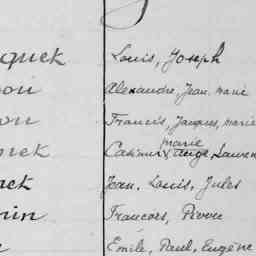 quek Louis, Joseph
Alexandre, Jean, marie
Francis, Jacques, marie
nek Casimir, marie ange, Laurent
Jean, Louis, Jules
rin Francois, Pierre
Emile, Paul, Eugène